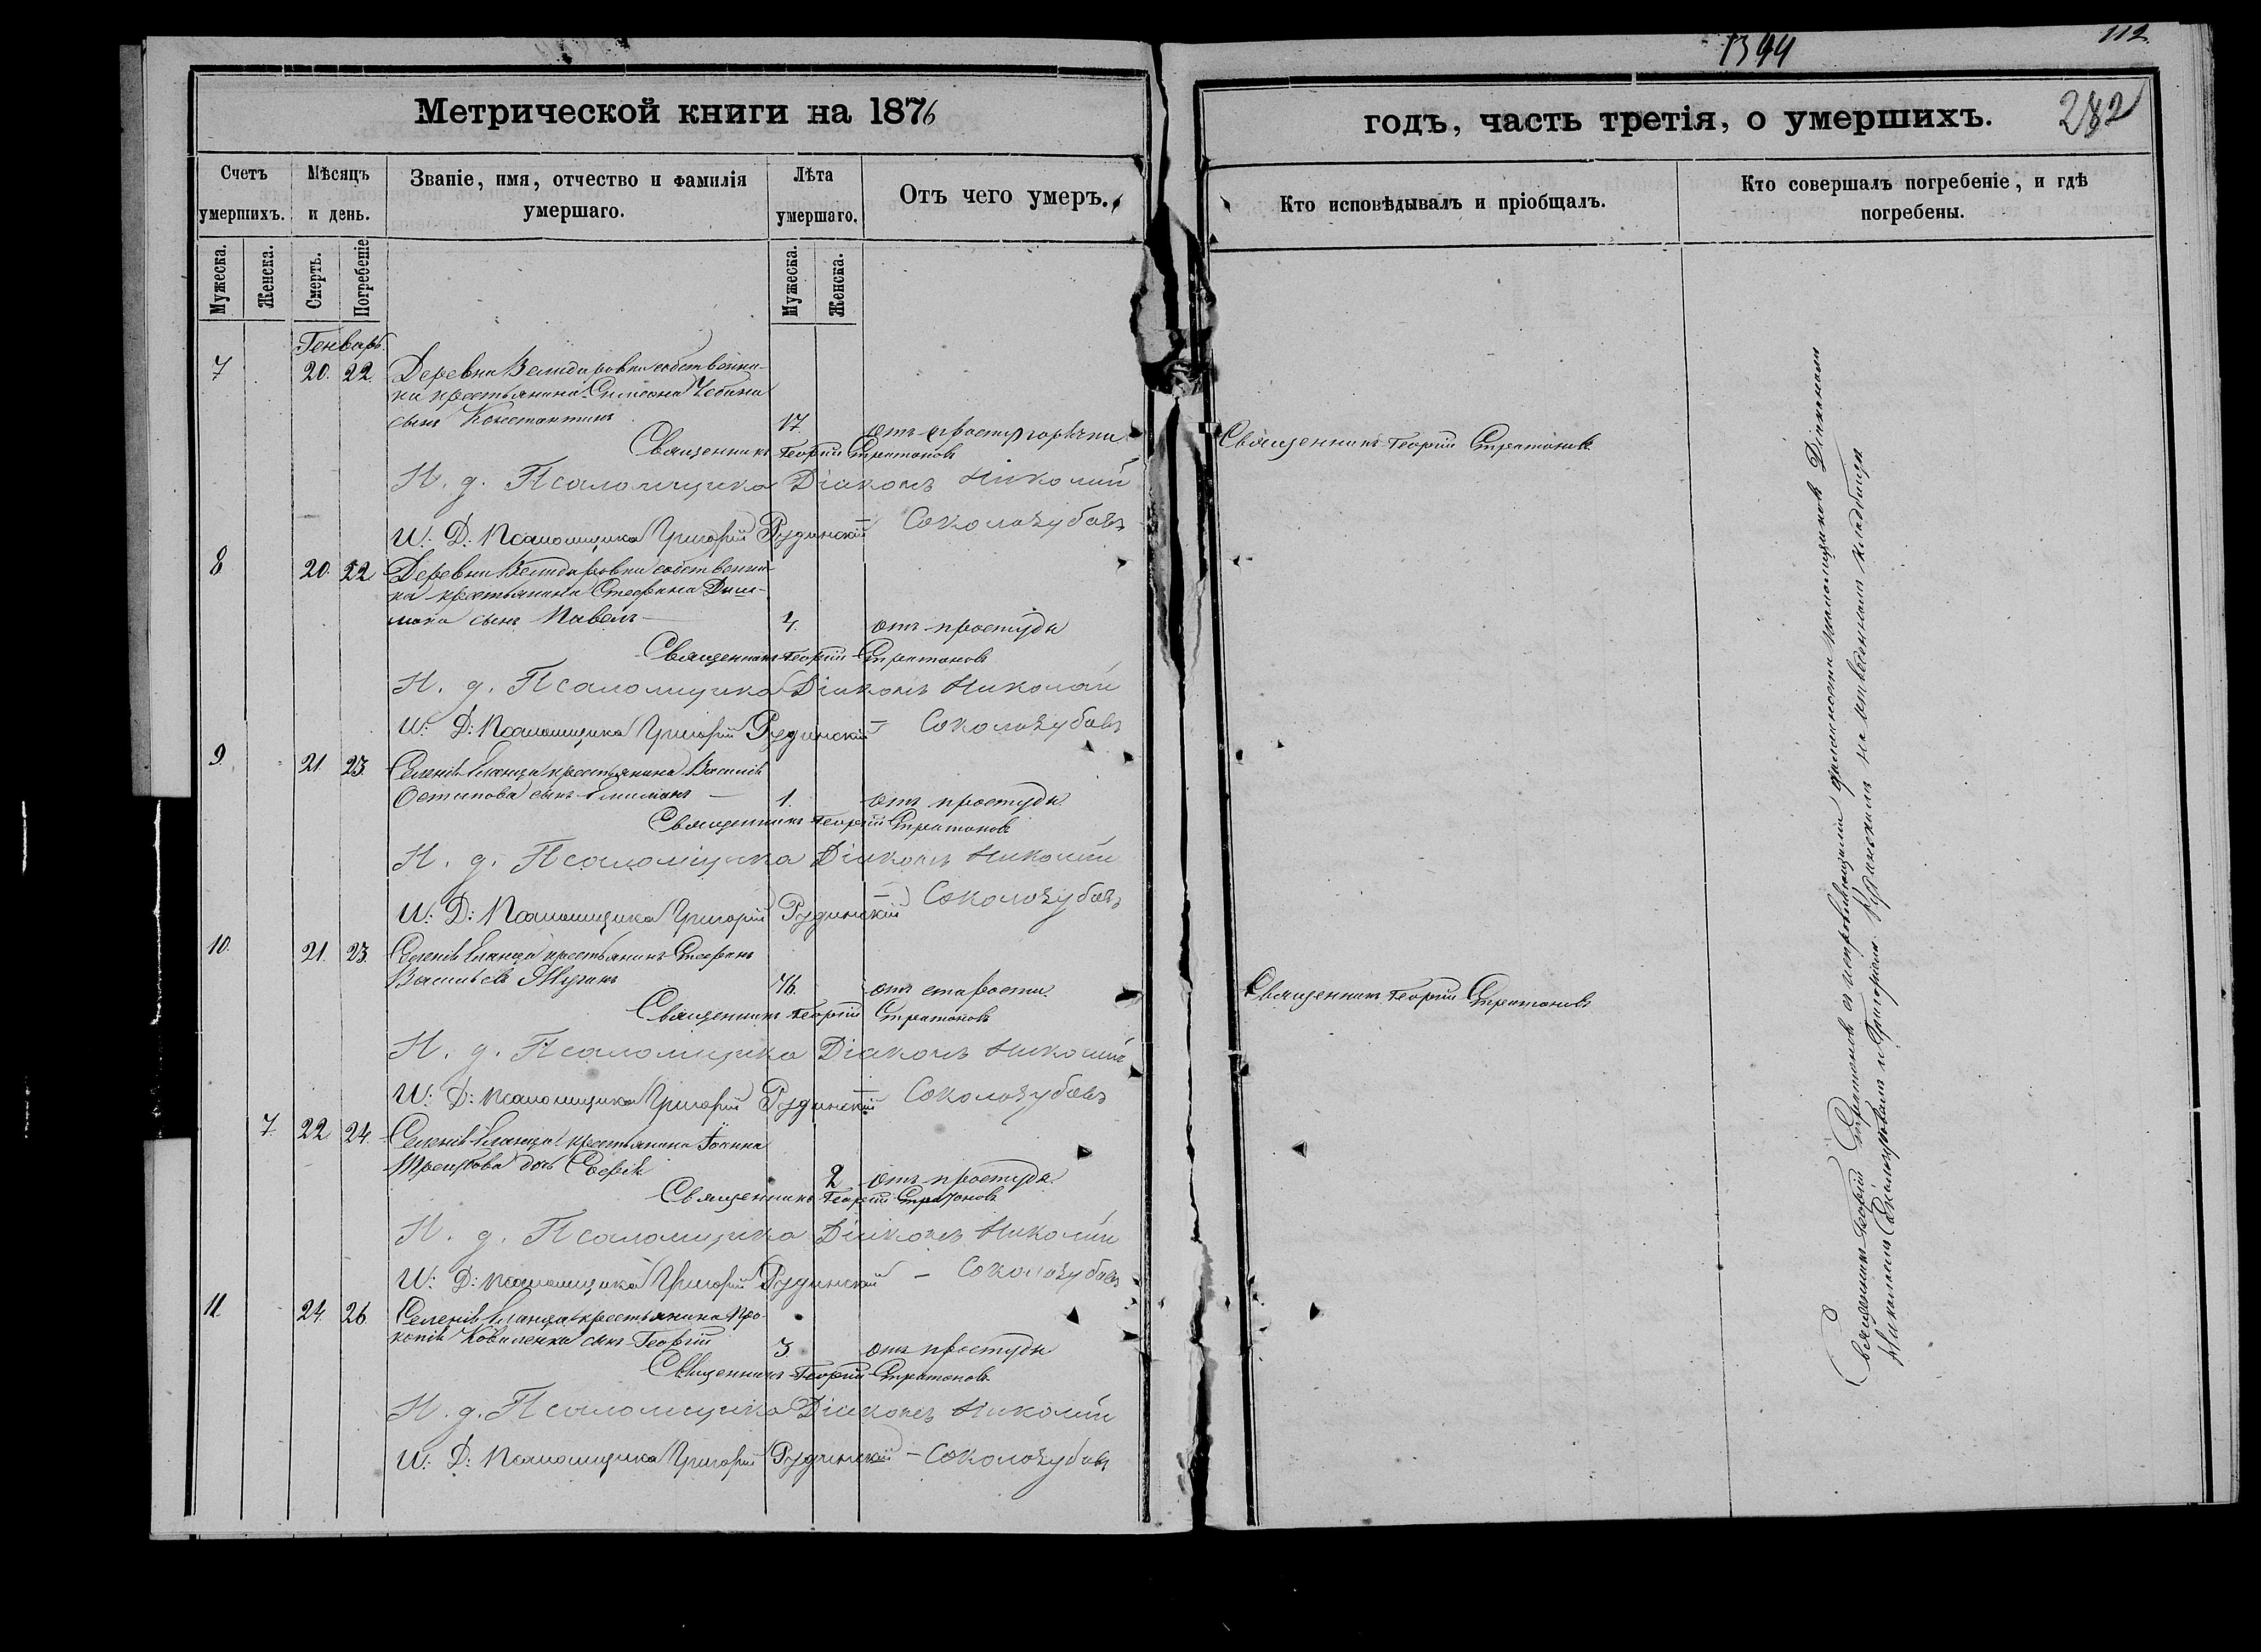 1344
112
Метрической книги на 1876
годъ, часть третія, о умершихъ.
282
Счетъ умершихъ.
Мѣсяцъ и день.
Званіе, имя, отчество и фамилія умершаго.
Лѣта умершаго.
Отъ чего умеръ.
Кто исповѣдывалъ и пріобщалъ.
Кто совершалъ погребеніе, и гдѣ погребены.
Мужеска.
Женска.
Смерть.
Погребеніе
Мужеска.
Женска.
Генварь.
7 20. 22. Деревни собственни-
ка крестьянина Симеона
сынъ Константинъ 17. отъ
Священникъ Георгій Стратоновъ Священникъ Георгій Стратоновъ
И. д. Псаломщика Діаконъ Николай
Соколозубовъ
И: Д: Псаломщика Григорій Рудинскій
8 20. 22 Деревни собственни-
ка крестьянина Стефана Дыш-
сынъ Павелъ 4. отъ простуды
Священникъ Георгій Стратоновъ
И. д. Псаломщика Діаконъ Николай
И: Д: Псаломщика Григорій Рудинскій – Соколозубовъ
9. 21 23. Селенія Еланца крестьянина Василія
Остапова сынъ 1. отъ простуды
Священникъ Георгій Стратоновъ
И. д. Псаломщика Діаконъ Николай
– Соколозубовъ
И: Д: Псаломщика Григорій Рудинскій
10. 21. 23. Селенія Еланца крестьянинъ Стефанъ
Васильевъ 76. отъ старости.
Священникъ Георгій Стратоновъ Священникъ Георгій Стратоновъ
И. д. Псаломщика Діаконъ Николай
И: Д: Псаломщика Григорій Рудинскій – Соколозубовъ
7. 22 24. Селенія Еланца крестьянина Іоанна
дочь Софія 2 отъ простуды.
Священникъ Георгій Стратоновъ
И. д. Псаломщика Діаконъ Николай
И: Д: Псаломщика Григорій Рудинскій – Соколозубовъ
11 24. 26 Селенія Еланца крестьянина Про-
копія Коваленка сынъ Георгій 3. отъ простуды
Священникъ Георгій Стратоновъ
И. д. Псаломщика Діаконъ Николай
И: Д: Псаломщика Григорій Рудинскій – Соколозубовъ
Священникъ Георгій Стратоновъ съ исправляющими должности Псаломщиковъ Діаконами
Николаемъ Соколозубовымъ и Григоріемъ Рудинскимъ на кладбищѣ